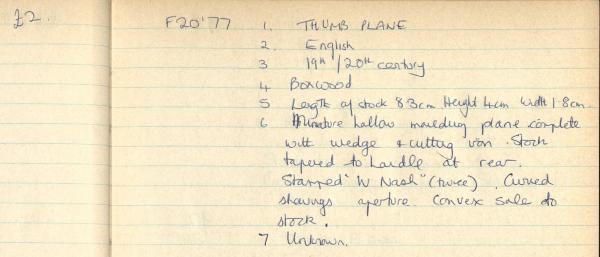 £2. F20'77 1. THUMB PLANE
2. English
3 19th/20th century
4 Boxwood
5 Length of stock 8.3cm. Height 4cm Width 1.8cm.
6 Miniature hollow moulding plane complete
with wedge & cutting iron. Stock
tapered to handle at rear.
Stamped "W Nash" (twice). Curved
shavings aperture. Convex sole to
stock.
7 Unknown.